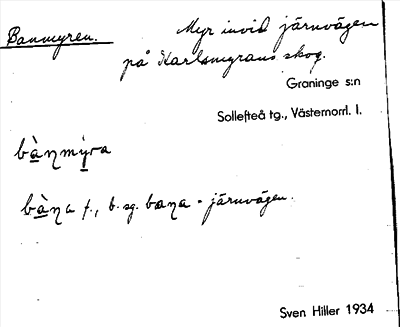 Banmyren.
Myr invid järnvägen
på Karlsmyrans skog.
Graninge s:n
Sollefteå tg., Västernorrl. l.
bànmýra
bàna f., b. sg. bana - järnvägen.
Sven Hiller 1934